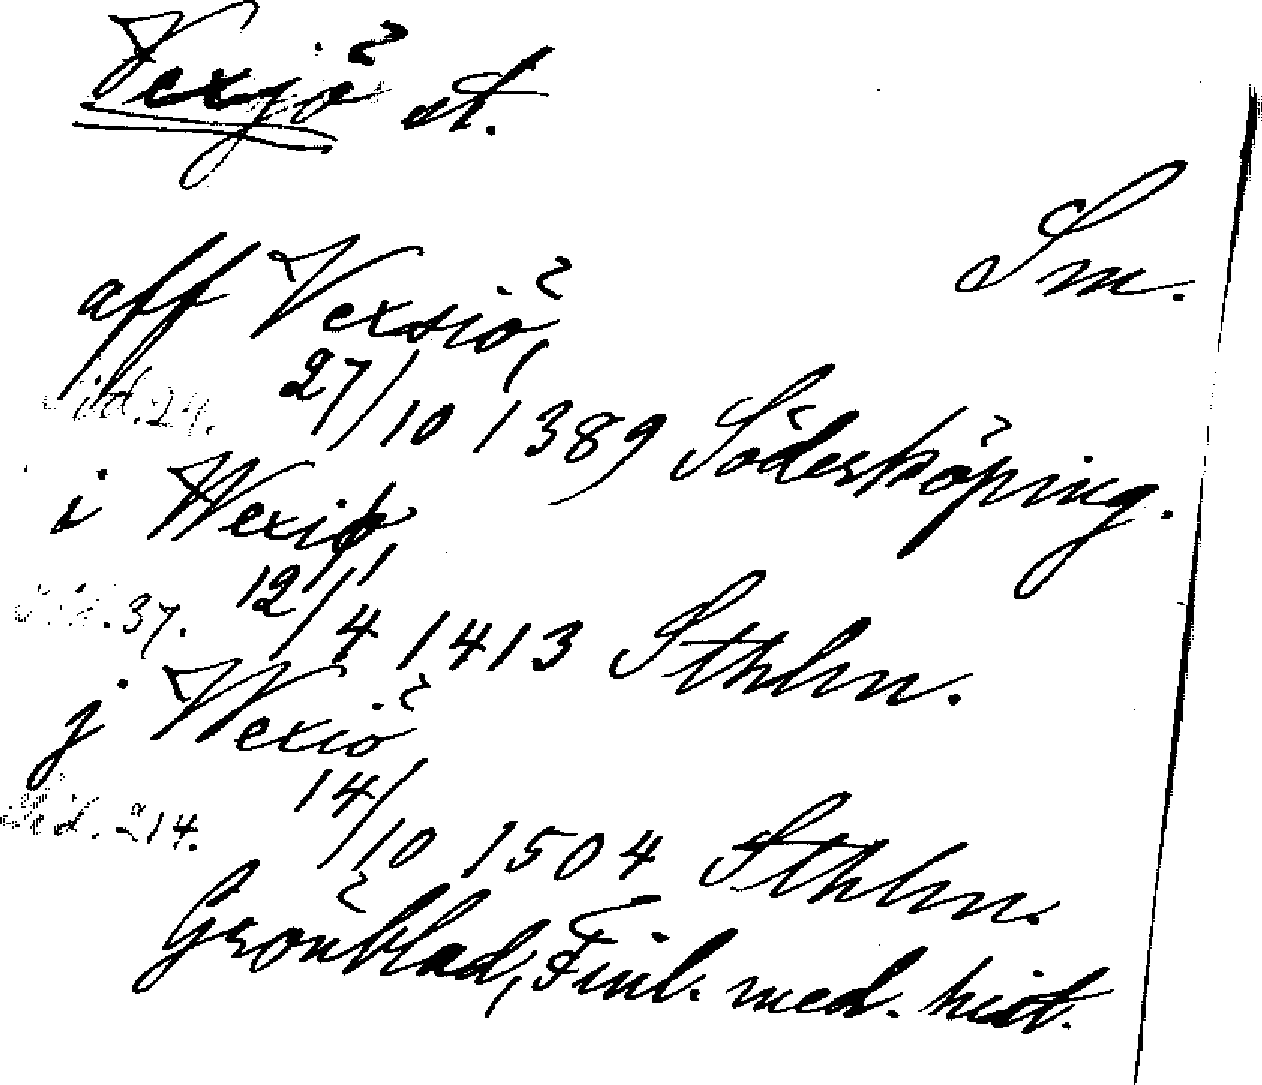 Vexjö st.
Sm.
aff Vexsiö,
Sid. 24. 27/10 1389 Söderköping.
i Wexiø,
Sid. 37. 12/4 1413 Sthlm.
j Wexiö
Sid. 214. 14/10 1504 Sthlm.
Grönblad, Finl. med. hist.